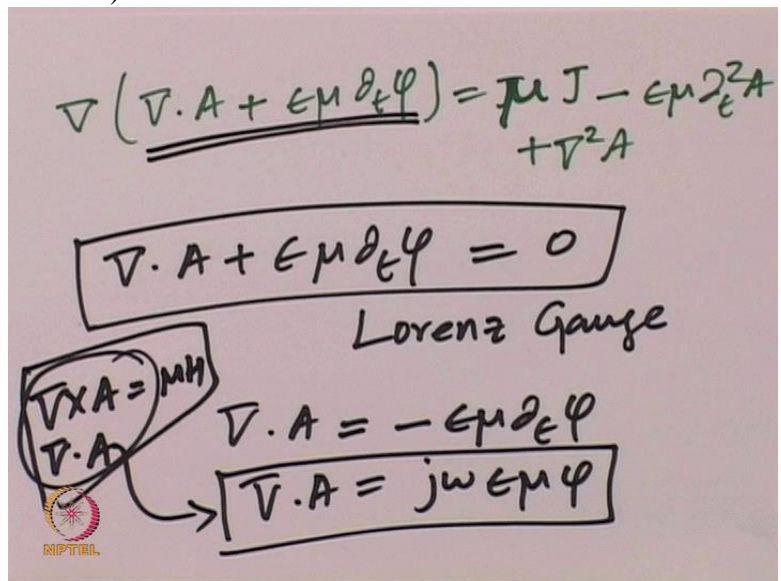 ∇(∇·A + εμ ∂ₜφ) = μ J − εμ ∂ₜ²A
+ ∇²A
∇·A + εμ ∂ₜφ = 0
Lorenz Gauge
∇×A = μH
∇·A
∇·A = − εμ ∂ₜφ
∇·A = jω εμ φ
NPTEL